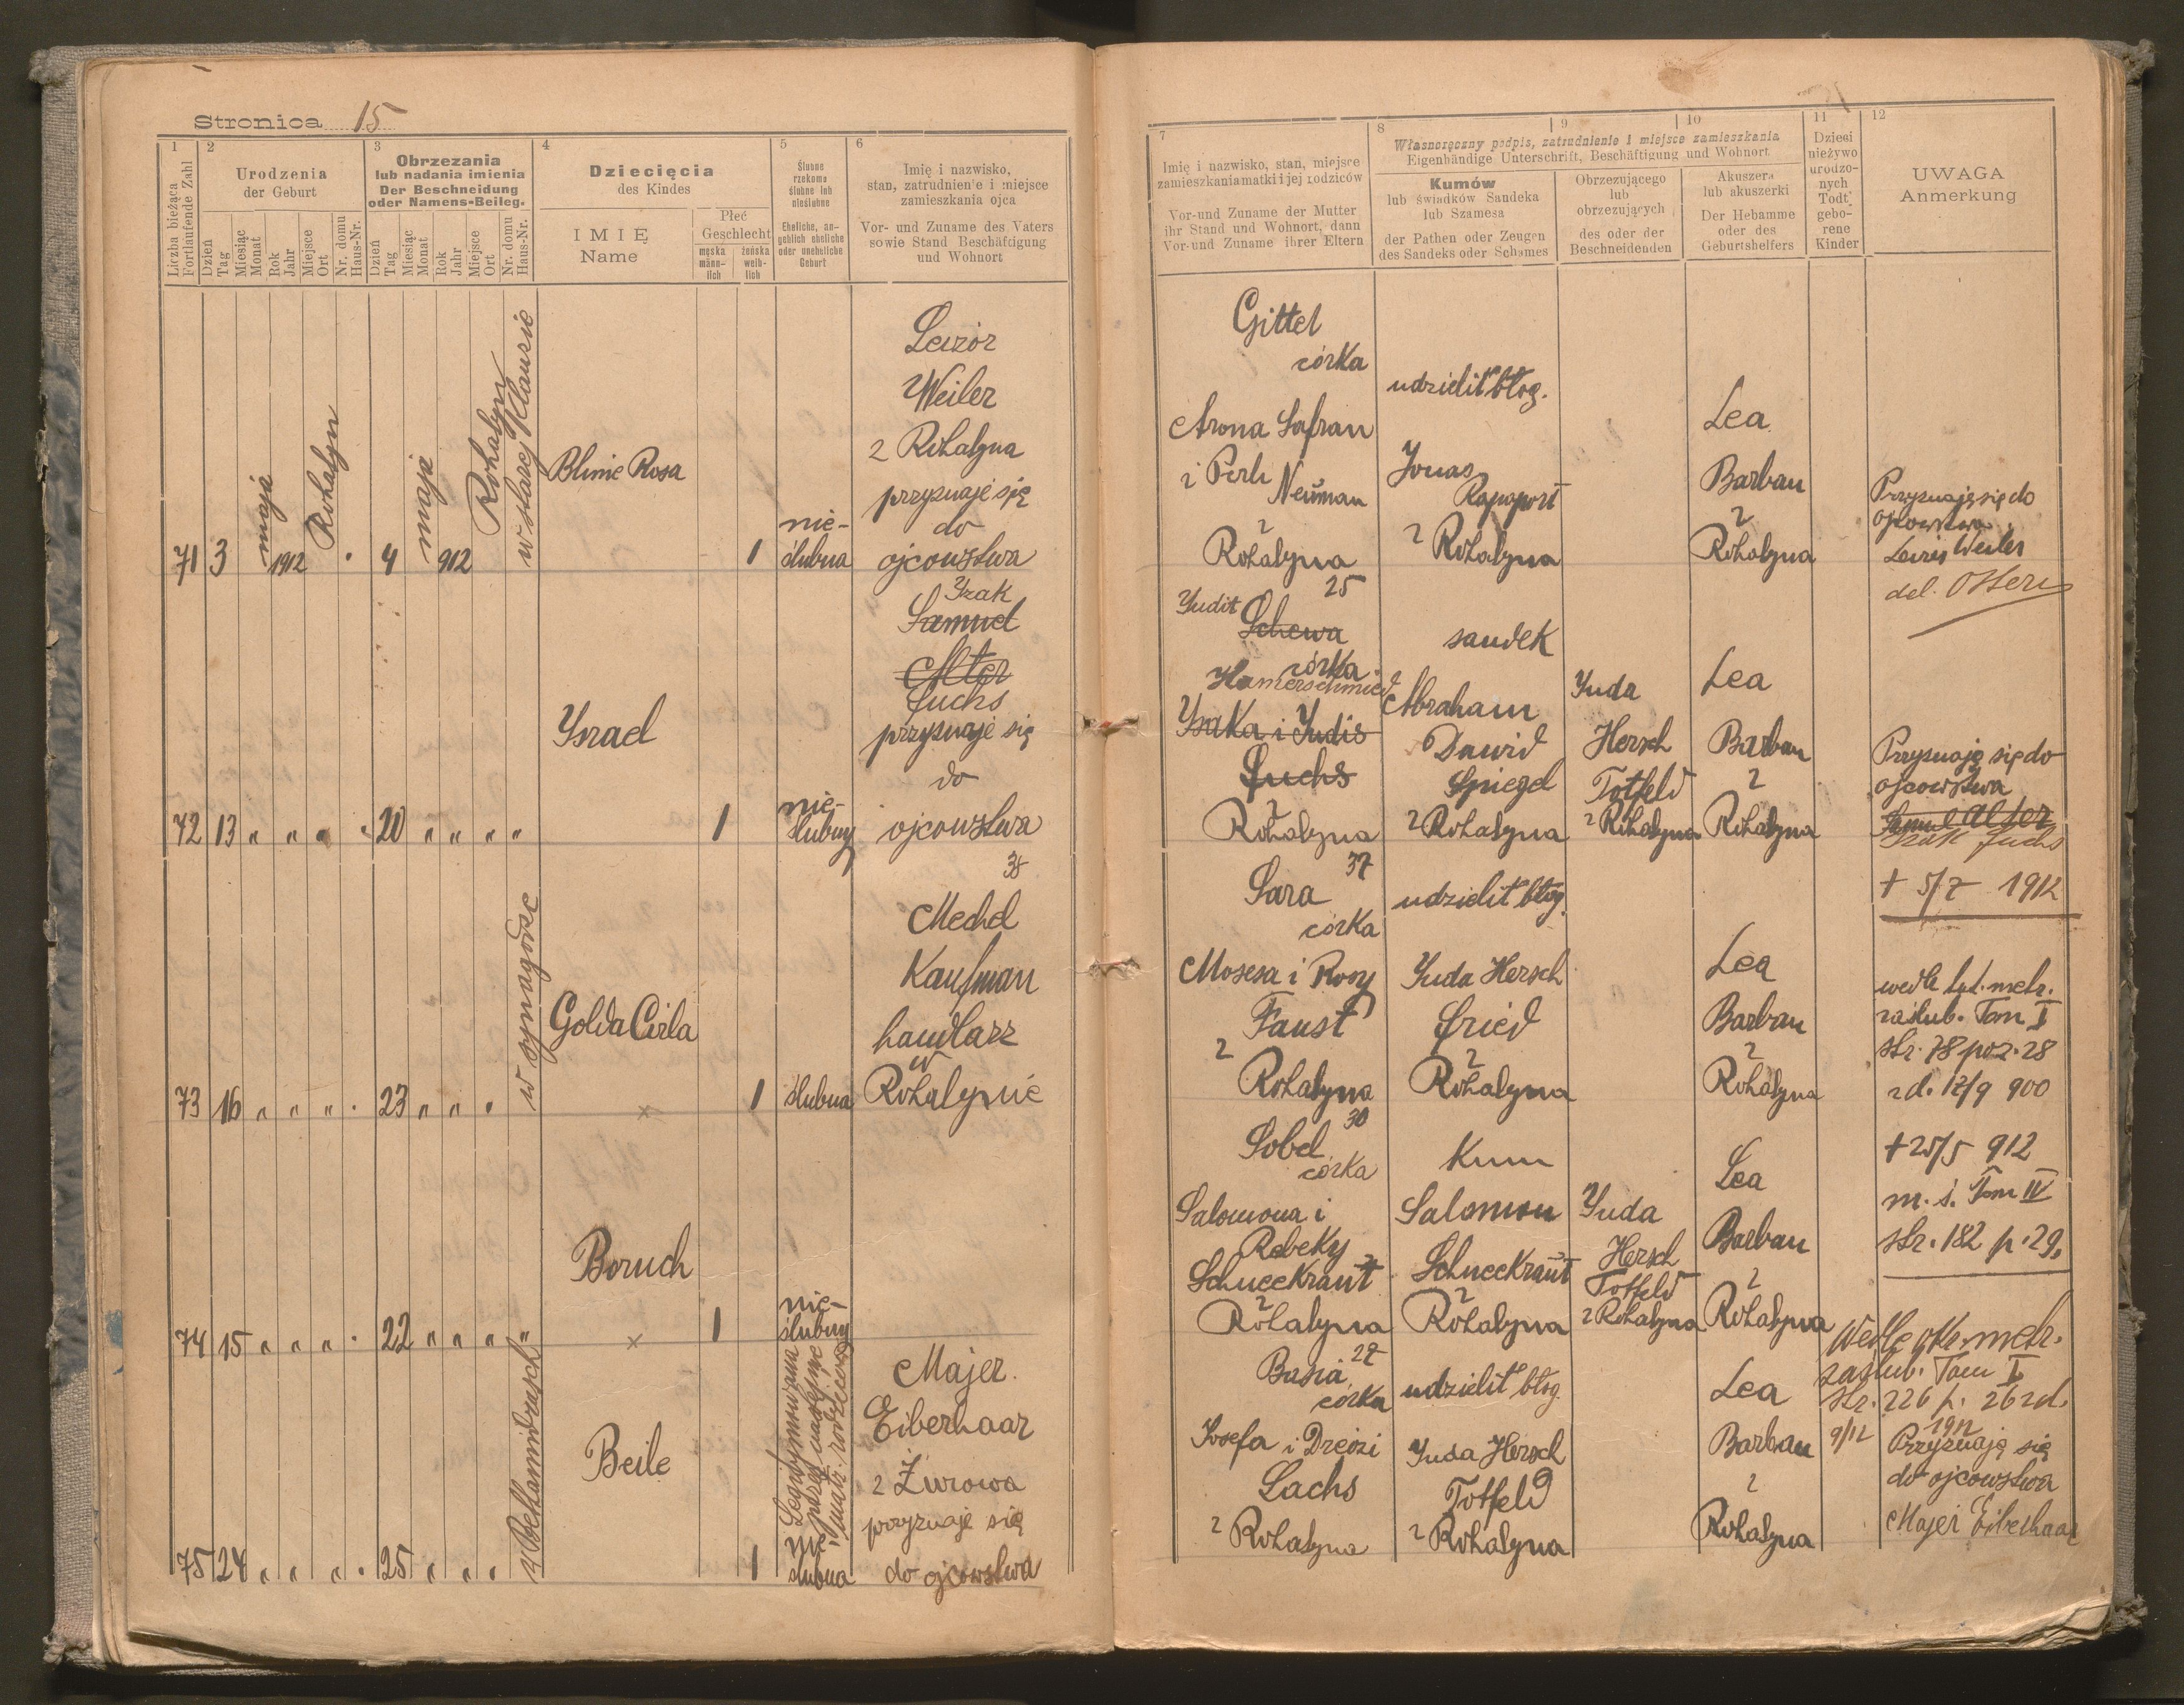 Stronica 15
1
Liczba bieżąca
Fortlaufende Zahl
2
Urodzenia
der Geburt
Dzień
Tag
Miesiąc
Monat
Rok
Jahr
Miejsce
Ort
Nr. domu
Haus-Nr.
3
Obrzezania
lub nadania imienia
Der Beschneidung
oder Namens-Beileg.
Dzień
Tag
Miesiąc
Monat
Rok
Jahr
Miejsce
Ort
Nr. domu
Haus-Nr.
4
Dziecięcia
des Kindes
IMIĘ
Name
Płeć
Geschlecht
męska
männ-
lich
żeńska
weib-
lich
5
Ślubne
rzekomo
ślubne lub
nieślubne
Eheliche, an-
geblich eheliche
oder uneheliche
Geburt
6
Imię i nazwisko,
stan, zatrudnienie i miejsce
zamieszkania ojca
Vor- und Zuname des Vaters
sowie Stand Beschäfdigung
und Wohnort
7
Imię i nazwisko, stan, miejsce
zamieszkania matki i jej rodziców
Vor-und Zuname der Mutter
ihr Stand und Wohnort, dann
Vor-und Zuname ihrer Eltern
8 9 10
Własnoręczny podpis, zatrudnienie i miejsce zamieszkania
Eigenhändige Unterschrift, Beschäftigung und Wohnort
Kumów
lub świadków Sandeka
lub Szamesa
der Pathen oder Zeugen
des Sandeks oder Schames
Obrzezującego
lub
obrzezujących
des oder der
Beschneidenden
Akuszera
lub akuszerki
Der Hebamme
oder des
Geburtshelfers
11
Dzieci
nieżywo
urodzo-
nych
Todt
gebo-
rene
Kinder
12
UWAGA
Anmerkung
71 3 maja 1912 Rohatyn
4 maja 912 Rohatyn
w starej Klausie
Blime Rosa
1
nie-
ślubna
Leizor
Weiler
z Rohatyna
przyznaje się
do
ojcowstwa
Gittel
córka
Arona Safran
i Perli
Neuman
z
Rohatyna
udzielił błog.
Jonas
Rapaport
z Rohatyna
Lea
Barban
z
Rohatyna
Przyznaję się do
ojcowstwa
Weiler
72 13 " " " 20 " " " "
Israel
1
nie-
ślubny
Izak
Samuel
Alter
Fuchs
przyznaje się
do
ojcowstwa
25
Judit
Schewa
córka
Hamerschmied
Isaka i Judis
Fuchs
z
Rohatyna
sandek
Abraham
Dawid
Spiegel
z Rohatyna
Juda
Hersch
Totfeld
z Rohatyna
Lea
Barban
z
Rohatyna
Przyznaję się do
ojcowstwa
Samuel Alter
Izak Fuchs
+ 5/7 1912
73 16 " " " 23 " "
w synagodze
Golda Cirla
×
1
ślubna
38
Mechel
Kaufman
handlarz
w
Rohatynie
37
Sara
córka
Mosesa i Rosy
Faust
z
Rohatyna
udzielił błog.
Juda Hersch
Fried
z
Rohatyna
Lea
Barban
z
Rohatyna
wedle tut. metr.
zaślub. Tom I
str. 78 poz. 28
z d. 12/9 900
74 15 " " " 22 " " " "
Boruch
×
1
nie-
ślubny
30
Sobel
córka
Salomona i
Rebeky
Schneekraut
z
Rohatyna
Kum
Salomon
Schneekraut
z
Rohatyna
Juda
Hersch
Totfeld
z Rohatyna
Lea
Barban
z
Rohatyna
+ 25/5 912
m. ś. Tom IV
str. 182 p. 29.
75 24 " " " 25 " "
w Bethamidrasch
Beile
1
nie-
ślubna
Majer
Eiberhaar
z Żurowa
przyznaje się
do ojcowstwa
27
Basia
córka
Josefa i Dreizi
Lachs
z Rohatyna
udzielił błog.
Juda Hersch
Totfeld
z Rohatyna
Lea
Barban
z
Rohatyna
Wedle metr.
zaślub. Tom I
str. 226 p. 26 z d.
9/12 1912
Przyznaję się
do ojcowstwa
Majer Eiberhaar